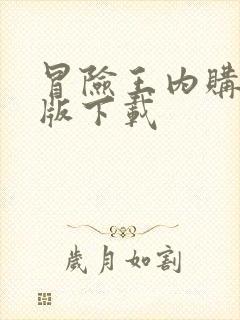 冒險王內購
版下載
歲月如割